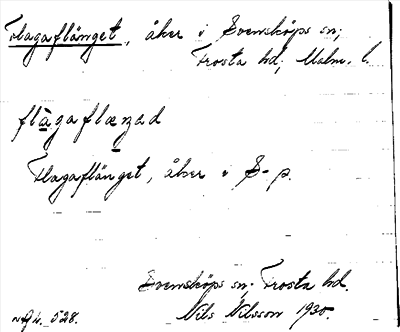 Flagaflänget, åker i Svensköps sn;
Frosta hd, Malm. l.
flagaflæŋad
Flagaflänget, åker i S-p.
Svensköps sn. Frosta hd.
Nils Nilsson 1930.
528.